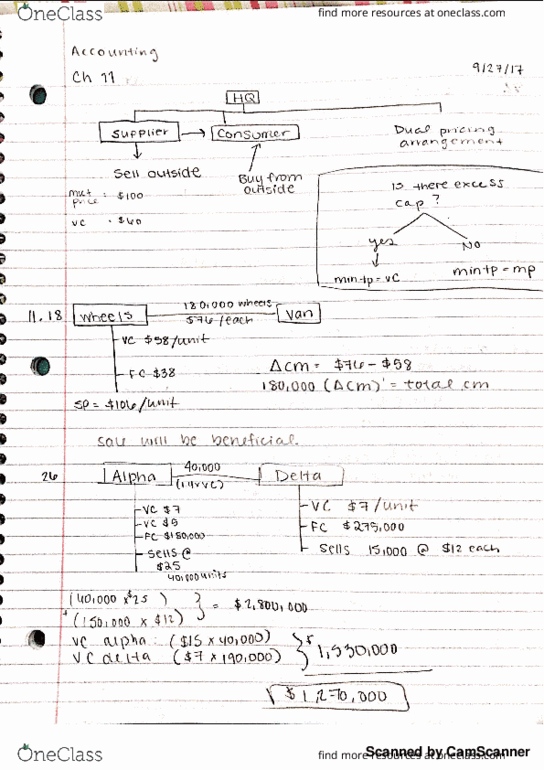 OneClass
find more resources at oneclass.com
Accounting
Ch 11
9/27/17
HQ
Supplier
Consumer
Dual pricing
arrangement
Sell outside
Buy from
outside
mkt
price : $100
vc - $60
Is there excess
cap ?
yes
No
min tp = vc
min tp = mp
11.18
Wheels
180,000 wheels
$76/each
Van
VC $58/unit
FC $38
SP = $106/unit
Δcm = $76 - $58
180,000 (Δcm) = total cm
sale will be beneficial.
26
Alpha
40,000
Delta
VC $7
FC $150,000
Sells @
$25
VC $7/unit
FC $275,000
Sells 15,000 @ $12 each
(40,000 x $25 )
+ (150,000 x $12)
= $2,800,000
VC alpha: ($15 x 40,000)
VC delta ($7 x 190,000)
$1,930,000
$1,270,000
OneClass
find more resources at oneclass.com
Scanned by CamScanner